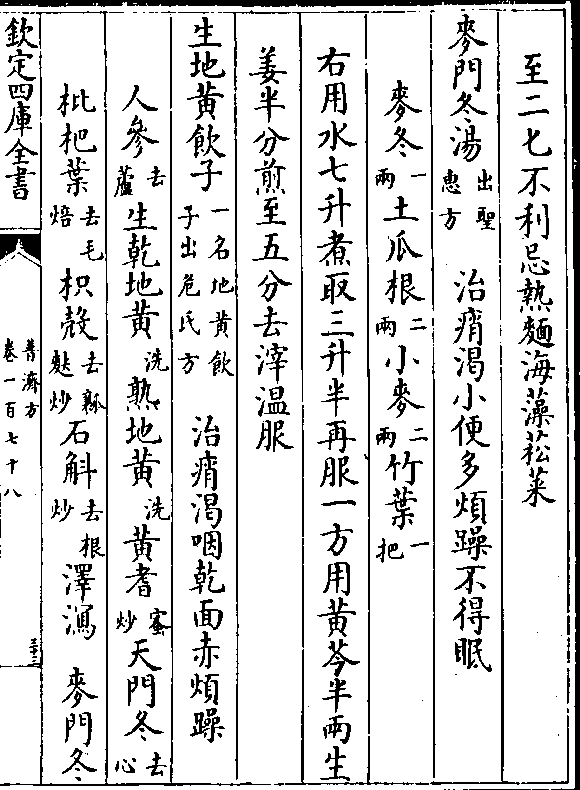 至二七不利忌熱麵海藻菘菜
麥門冬湯出聖惠方 治痟渴小便多煩躁不得眠
麥冬一兩土瓜根二兩小麥二兩竹葉一把
右用水七升煮取三升半再服一方用黄芩半兩生
姜半分煎至五分去滓温服
生地黄飲子一名地黄飲子出危氏方 治痟渴咽乾面赤煩躁
人參去蘆生乾地黄洗熟地黄洗黄耆蜜炒天門冬去心
枇杷葉去毛焙枳殼去瓤麩炒石斛去根炒澤瀉 麥門冬
欽定四庫全書
普濟方
卷一百七十八
三十三